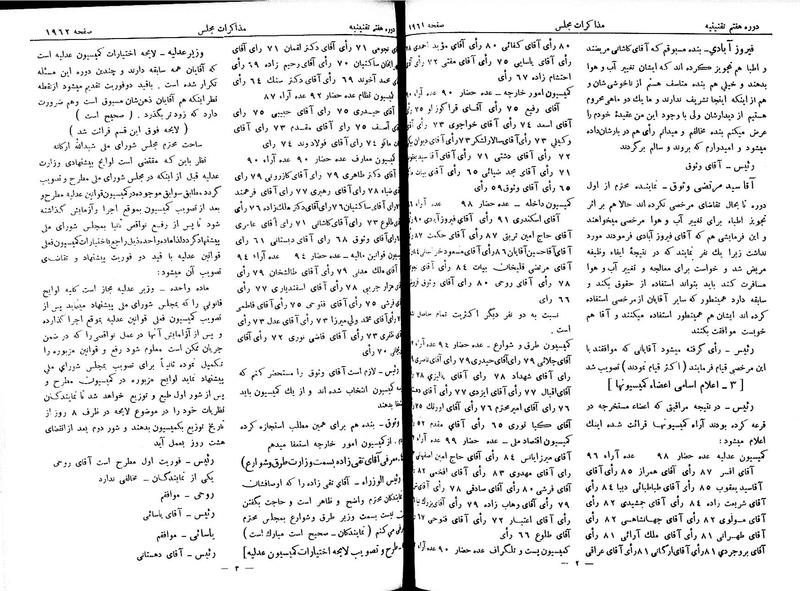 دوره هفتم تقنینیه
مذاکرات مجلس
صفحه ۱۹۶۱
فیروز آبادی - بنده مسبوقم که آقای کاشانی مریضند
و اطبا هم تجویز کرده اند که ایشان تغییر آب و هوا
بدهند و خیلی هم بنده متأسف هستم از ناخوشی شان و
هم از اینکه اینجا تشریف ندارند و ما یک دو ماهی محروم
هستیم از دیدارشان ولی با وجود این من عقیدهٔ خودم را
عرض میکنم بنده مخالفم و میدانم رأی هم در بارشان داده
میشود و امیدوارم که بروند و سالم برگردند
رئیس - آقای وثوق
آقا سید مرتضی وثوق - نماینده محترم از اول
دوره تا بحال تقاضای مرخصی نکرده اند حالا هم بر اثر
تجویز اطباء برای تغییر آب و هوا مرخصی میخواهند
و این فرمایشی هم که آقای فیروز آبادی فرمودند مورد
نداشت زیرا یک نفر نماینده که در نتیجهٔ ایفاء وظیفه
مریض شد و خواست برای معالجه و تغییر آب و هوا
مسافرت کند باید بتواند استفاده از حقوق بکند و
سابقه دارد همینطور که سایر آقایان از مرخصی استفاده
کرده اند ایشان هم همینطور استفاده میکنند و آقا هم
خوبست موافقت بکنند
رئیس - رأی گرفته میشود آقایانی که موافقند با
این مرخصی قیام فرمایند ( اکثر قیام نمودند ) تصویب شد
[ ۳ - اعلام اسامی اعضاء کمیسیونها ]
رئیس - در نتیجه مراقبتی که اعضاء مستخرجه در
قرعه کرده بودند آراء کمیسیونها قرائت شده اینک
اعلام میشود :
کمیسیون عدلیه عده حضار ۹۸ عده آراء ۹۶
آقای افسر ۸۷ رأی آقای همراز ۸۵ رأی
آقاسید یعقوب ۸۵ رأی آقای طباطبائی دیبا ۸۴ رأی
آقای شریعت زاده ۸۴ رأی آقای جمشیدی ۸۲ رأی
آقای مولوی ۸۲ رأی آقای جهانشاهی ۸۲ رأی
آقای طهرانی ۸۱ رأی آقای ملک آرائی ۸۱ رأی
آقای بروجردی ۸۱ رأی آقای ارگانی ۸۱ رأی آقای عراقی
۸۰ رأی آقای کفائی ۸۰ رأی آقای مؤید احمدی
رأی آقای یاسایی ۷۵ رأی آقای مفتی ۷۲ رأی آقای
احتشام زاده ۶۷ رأی
کمیسیون امور خارجه - عده حضار ۹۰
آقای رفیع ۷۵ رأی آقای قراگوزلو ۷۵
آقای اسعد ۷۴ رأی آقای خواجوی ۷۳ رأی
وکیلی ۷۳ رأی آقای سالار لشکر ۷۳ رأی آقای دیوان بیگی
۷۲ رأی آقای دشتی ۷۱ رأی
۷۱ رأی آقای مجد ضیائی ۶۵ رأی آقای بیات
۶۵ رأی آقای وثوق ۵۹ رأی
کمیسیون داخله - عده حضار ۹۸ عده آراء
آقای اسکندری ۹۱ رأی آقای فیروزآبادی ۹۰
آقای حاج امین تربتی ۸۷ رأی آقای حکمت ۸۷
آقای آقا حسین آقایان ۸۶ رأی آقای مسعود
آقای مرتضی قلیخان بیات ۸۴ رأی آقای
۷۸ رأی آقای روحی ۸۰ رأی آقای وثوق
۶۶ رأی
نسبت به دو نفر دیگر اکثریت تمام حاصل
است .
کمیسیون طرق و شوارع - عده حضار ۹۰ عده
آقای جلائی ۷۹ رأی آقای حیدری ۷۹ رأی آقای
رأی آقای شهداد ۷۸ رأی آقای پالیزی
آقای اقبال ۷۷ رأی آقای ایزدی ۷۷ رأی آقای
۷۶ رأی آقای امیر محترم ۷۶ رأی آقای اورنگ
آقای کیا نوری ۶۵ رأی آقای مقدم
کمیسیون اقتصاد ملی - عده حضار ۹۹ عده آراء
آقای میرزایانس ۸۴ رأی آقای حاج امین
آقای مهدوی ۸۳ رأی آقای افخمی
آقای فرشی ۸۰ رأی آقای صادقی ۷۸ رأی
۷۹ رأی آقای وهاب زاده ۷۹ رأی آقای
رأی آقای اعتبار ۷۲ رأی آقای فتوحی
آقای طلوع ۶۶ رأی
کمیسیون پست و تلگراف عده حضار ۹۰ عده آراء
— ۲ —
دوره هفتم تقنینیه
مذاکرات مجلس
صفحه ۱۹۶۲
نجومی ۷۱ رأی آقای دکتر لقمان ۷۱ رأی آقای
ساکنیان ۷۰ رأی آقای رحیم زاده ۶۹ رأی
آخوند ۶۹ رأی آقای دکتر سنگ ۶۴ رأی
کمیسیون نظام عده حضار ۹۲ عده آراء ۸۷
آقای حیدری ۷۵ رأی آقای حبیبی ۷۵ رأی
آصف ۷۵ رأی آقای مقدم ۷۳ رأی آقای
ماکو ۷۴ رأی آقای فولادوند ۷۴ رأی
کمیسیون معارف عده حضار ۹۰ عده آراء ۹۰
دکتر طاهری ۷۹ رأی آقای کازرونی ۷۹ رأی
ضیاء ۷۸ رأی آقای رهبری ۷۷ رأی آقای فرهمند
رأی آقای ساکنیان ۷۶ رأی آقای دکتر ملک زاده ۷۶ رأی
طلوع ۷۳ رأی آقای کاشانی ۷۱ رأی آقای عامری
رأی آقای وثوق ۶۸ رأی آقای دبستانی ۶۱ رأی
کمیسیون قوانین مالیه - عده حضار ۹۴ عده آراء ۹۴
ملک مدنی ۷۹ رأی آقای طالشخان ۷۹ رأی
جربی ۷۸ رأی آقای اسفندیاری ۷۷ رأی
فرشی ۷۵ رأی آقای فتوحی ۷۵ رأی آقای فاطمی
رأی آقای محمد ولی میرزا ۷۳ رأی آقای عدل ۷۳ رأی
۷۳ رأی آقای قاضی نوری ۷۲ رأی آقای
۷۰ رأی
رئیس - لازم است آقای وثوق را مستحضر کنم که
کمیسیون انتخاب شده اند و از یک کمیسیون باید
بدهند
وثوق - بنده هم برای همین مطلب استجازه کرده
از کمیسیون امور خارجه استعفا میدهم
معرفی آقای تقی زاده بسمت وزارت طرق و شوارع ]
رئیس الوزراء - آقای تقی زاده را که اوصافشان
نمایندگان محترم واضح و ظاهر است و حاجت بگفتن
نیست بسمت وزیر طرق و شوارع بمجلس محترم
می کنم ( نمایندگان - صحیح است مبارک است )
طرح و تصویب لایحه اختیارات کمیسیون عدلیه ]
وزیر عدلیه - لایحه اختیارات کمیسیون عدلیه است
که آقایان همه سابقه دارند و چندین دوره این مسئله
تکرار شده است . باقید دو فوریت تقدیم میشود از نقطه
نظر اینکه هم آقایان ذهن شان مسبوق است و هم ضرورت
دارد که زودتر بگذرد . ( صحیح است )
( لایحه فوق این قسم قرائت شد )
ساحت محترم مجلس شورای ملی شیدالله ارکانه
نظر باین که مقتضی است لوایح پیشنهادی وزارت
عدلیه قبل از اینکه در مجلس شورای ملی مطرح و تصویب
گردد مطابق سوابق موجوده در کمیسیون قوانین عدلیه مطرح و
بعد از تصویب کمیسیون بموقع اجرا و آزمایش گذاشته
شود تا پس از رفع نواقص ثانیاً بمجلس شورای ملی
پیشنهاد گردد لذا ماده واحده ذیل راجع باختیارات کمیسیون فعلی
قوانین عدلیه با قید دو فوریت پیشنهاد و تقاضای
تصویب آن میشود :
ماده واحده - وزیر عدلیه مجاز است کلیه لوایح
قانونی را که بمجلس شورای ملی پیشنهاد مینماید پس از
تصویب کمیسیون فعلی قوانین عدلیه بموقع اجرا گذارده
و پس از آزمایش آنها در عمل نواقصی را که در ضمن
جریان ممکن است معلوم شود رفع و قوانین مزبوره را
تکمیل نموده ثانیاً برای تصویب بمجلس شورای ملی
پیشنهاد نماید لوایح مزبوره در کمیسیون مطرح و
پس از شور اول طبع و توزیع خواهد شد تا نمایندگان
نظریات خود را در موضوع لایحه در ظرف ۸ روز از
تاریخ توزیع بکمیسیون بدهند و شور دوم بعد از انقضای
هشت روز بعمل آید
رئیس - فوریت اول مطرح است آقای روحی
یکی از نمایندگان - مخالفی ندارد
روحی - موافقم
رئیس - آقای یاسائی
یاسائی - موافقم
رئیس - آقای دهستانی
— ۳ —